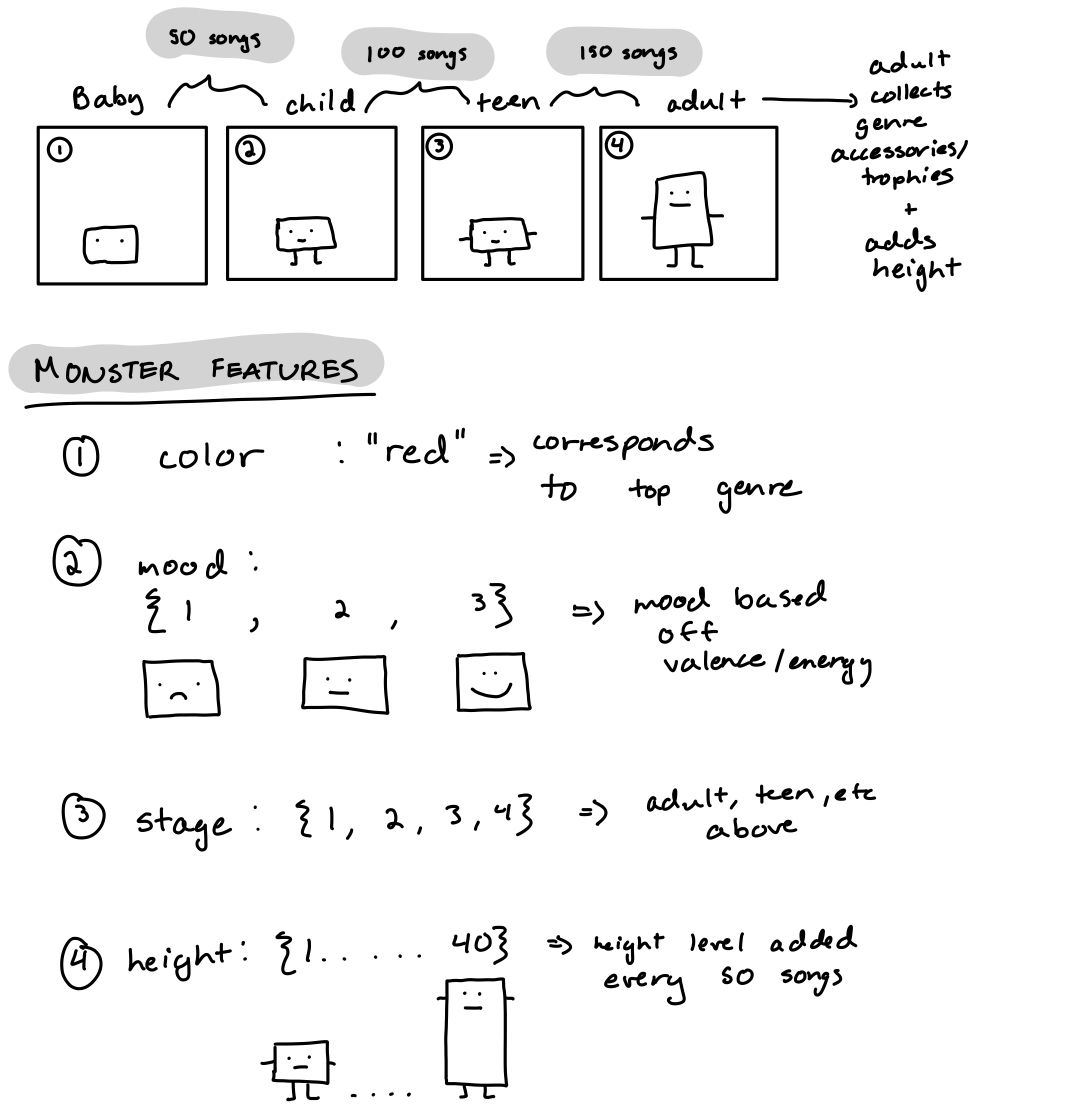 50 songs
100 songs
150 songs
Baby
child
teen
adult
adult
collects
genre
accessories/
trophies
+
adds
height
1
2
3
4
MONSTER FEATURES
1 color : "red" => corresponds
to top genre
2 mood :
{1, 2, 3} => mood based
off
valence/energy
3 stage : {1, 2, 3, 4} => adult, teen, etc
above
4 height: {1...... 40} => height level added
every 50 songs
....